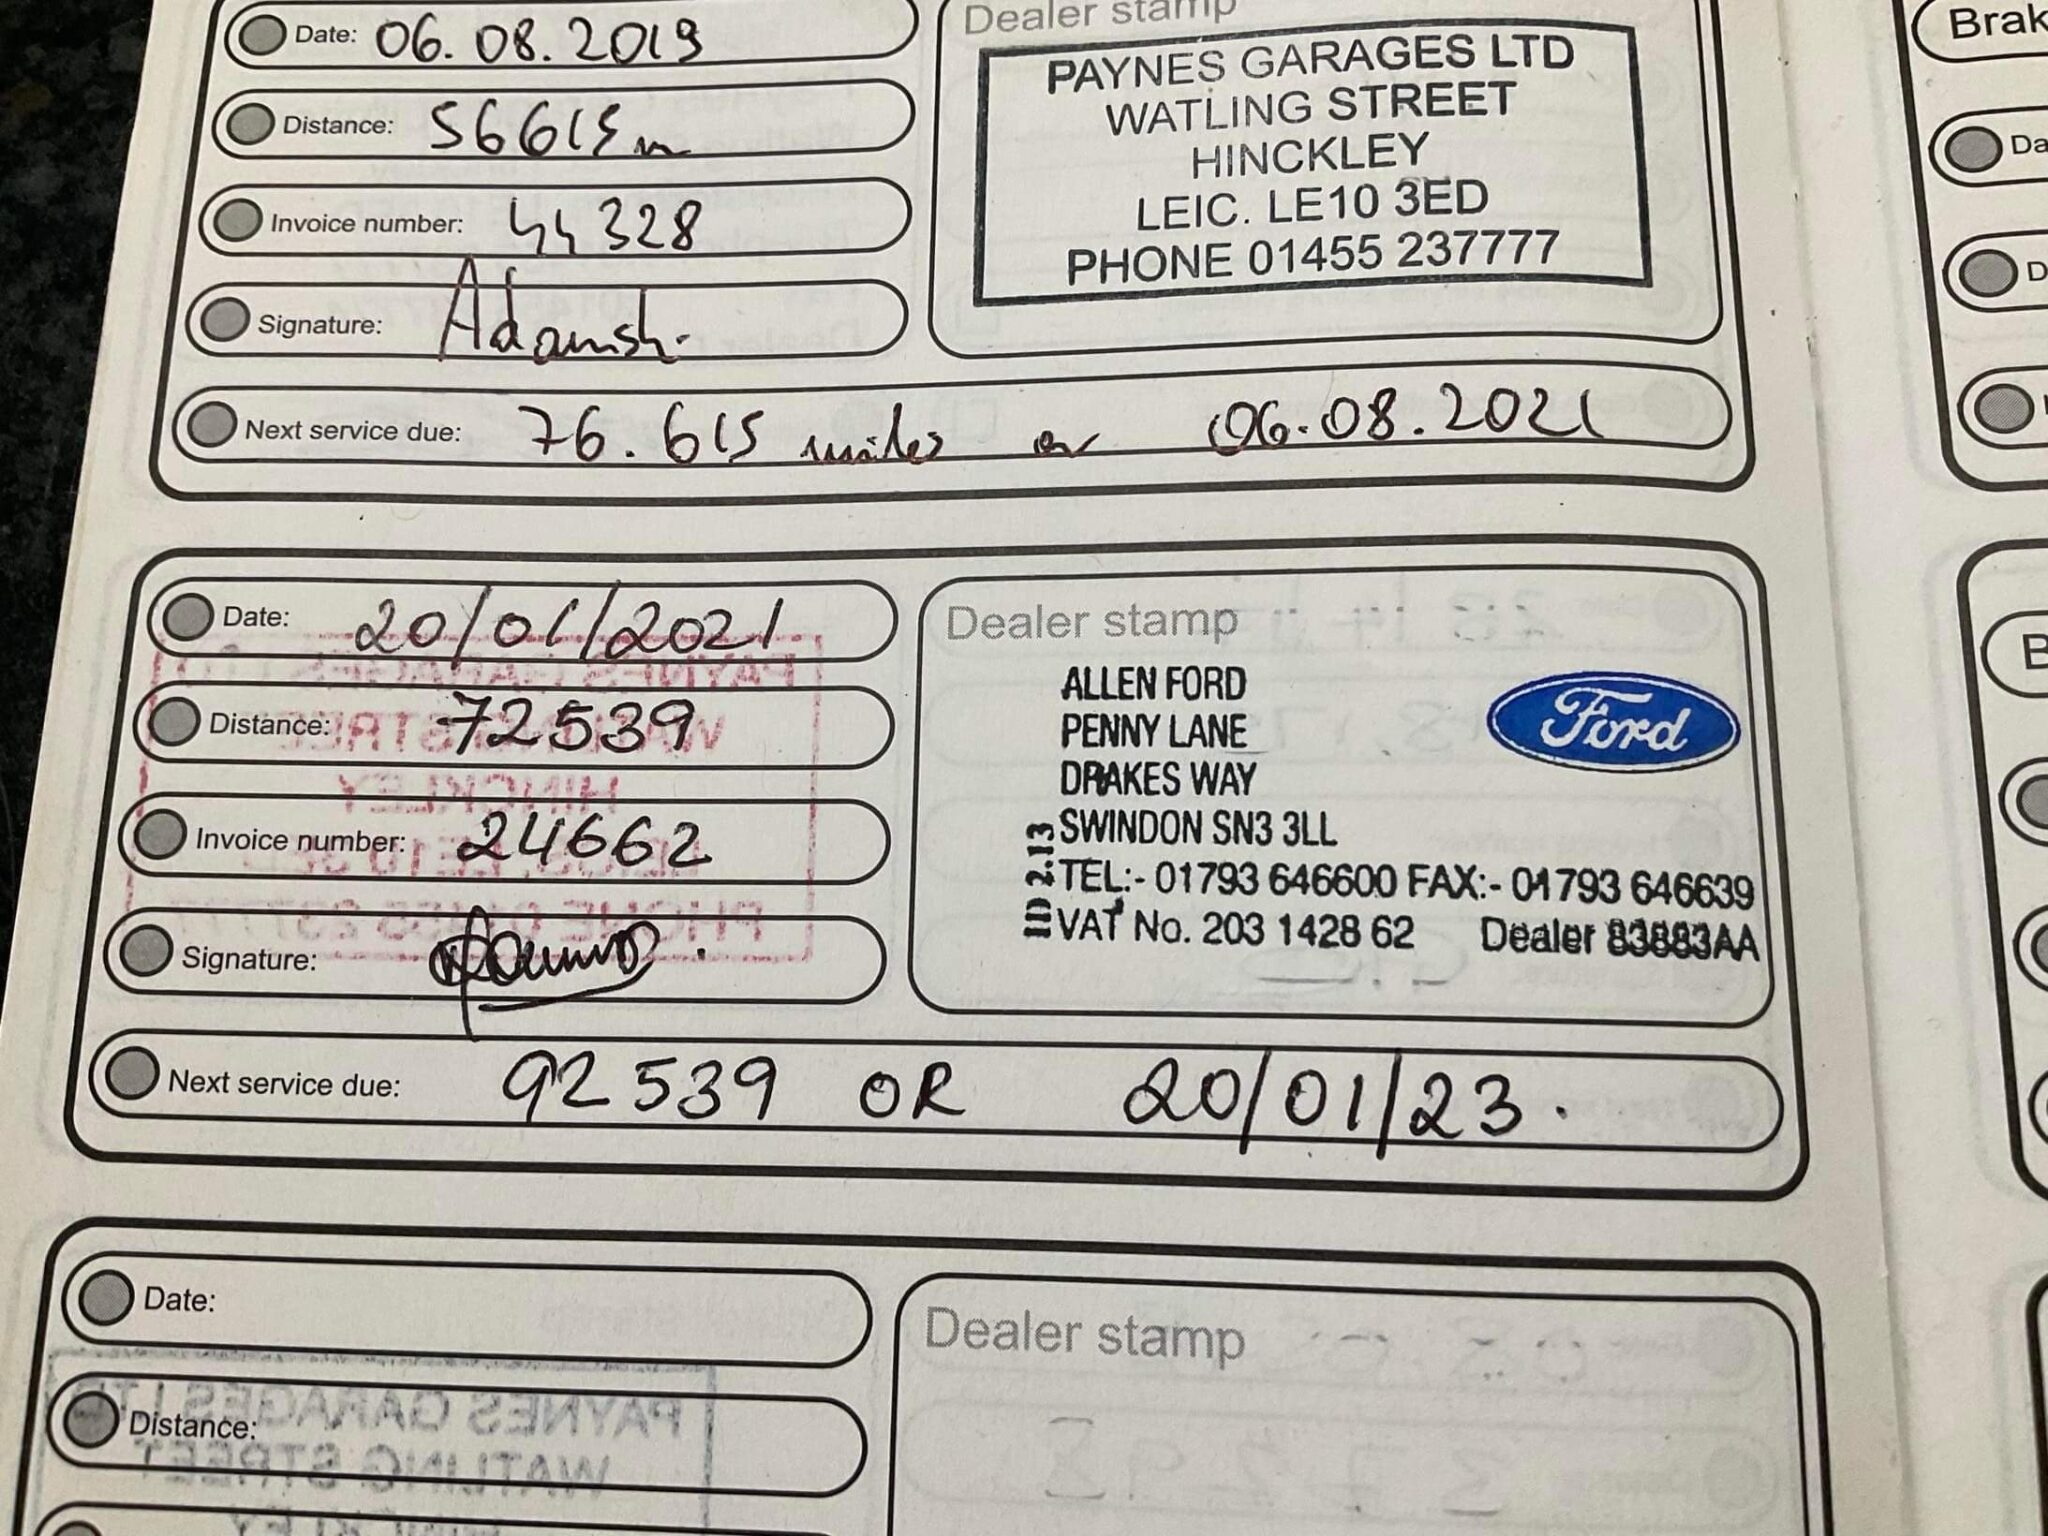 Date: 06.08.2019
Distance: 56615m
Invoice number: 44328
Signature: Adamsh.
Next service due: 76.615 miles or 06.08.2021
Dealer stamp
PAYNES GARAGES LTD
WATLING STREET
HINCKLEY
LEIC. LE10 3ED
PHONE 01455 237777
Date: 20/01/2021
Distance: 72539
Invoice number: 24662
Signature:
Next service due: 92539 OR 20/01/23.
Dealer stamp
ALLEN FORD
PENNY LANE
DRAKES WAY
SWINDON SN3 3LL
TEL:- 01793 646600 FAX:- 01793 646639
VAT No. 203 1428 62 Dealer 83883AA
ID 2.13
Ford
Date:
Distance:
Dealer stamp
PAYNES GARAGES LTD
WATLING STREET
HINCKLEY
Brak
Da
D
B